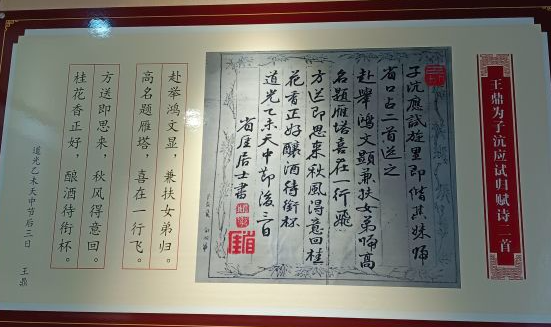 王鼎为子沆应试归赋诗二首
子沆應試旋里即偕其妹歸
省口占二首送之
赴舉鴻文顯兼扶女弟歸高
名題雁塔喜在一行飛
方送即思來秋風得意回桂
花香正好釀酒待銜杯
道光乙未天中節後三日
省厓居士書
赴举鸿文显，兼扶女弟归。
高名题雁塔，喜在一行飞。
方送即思来，秋风得意回。
桂花香正好，酿酒待衔杯。
道光乙未天中节后三日
王鼎